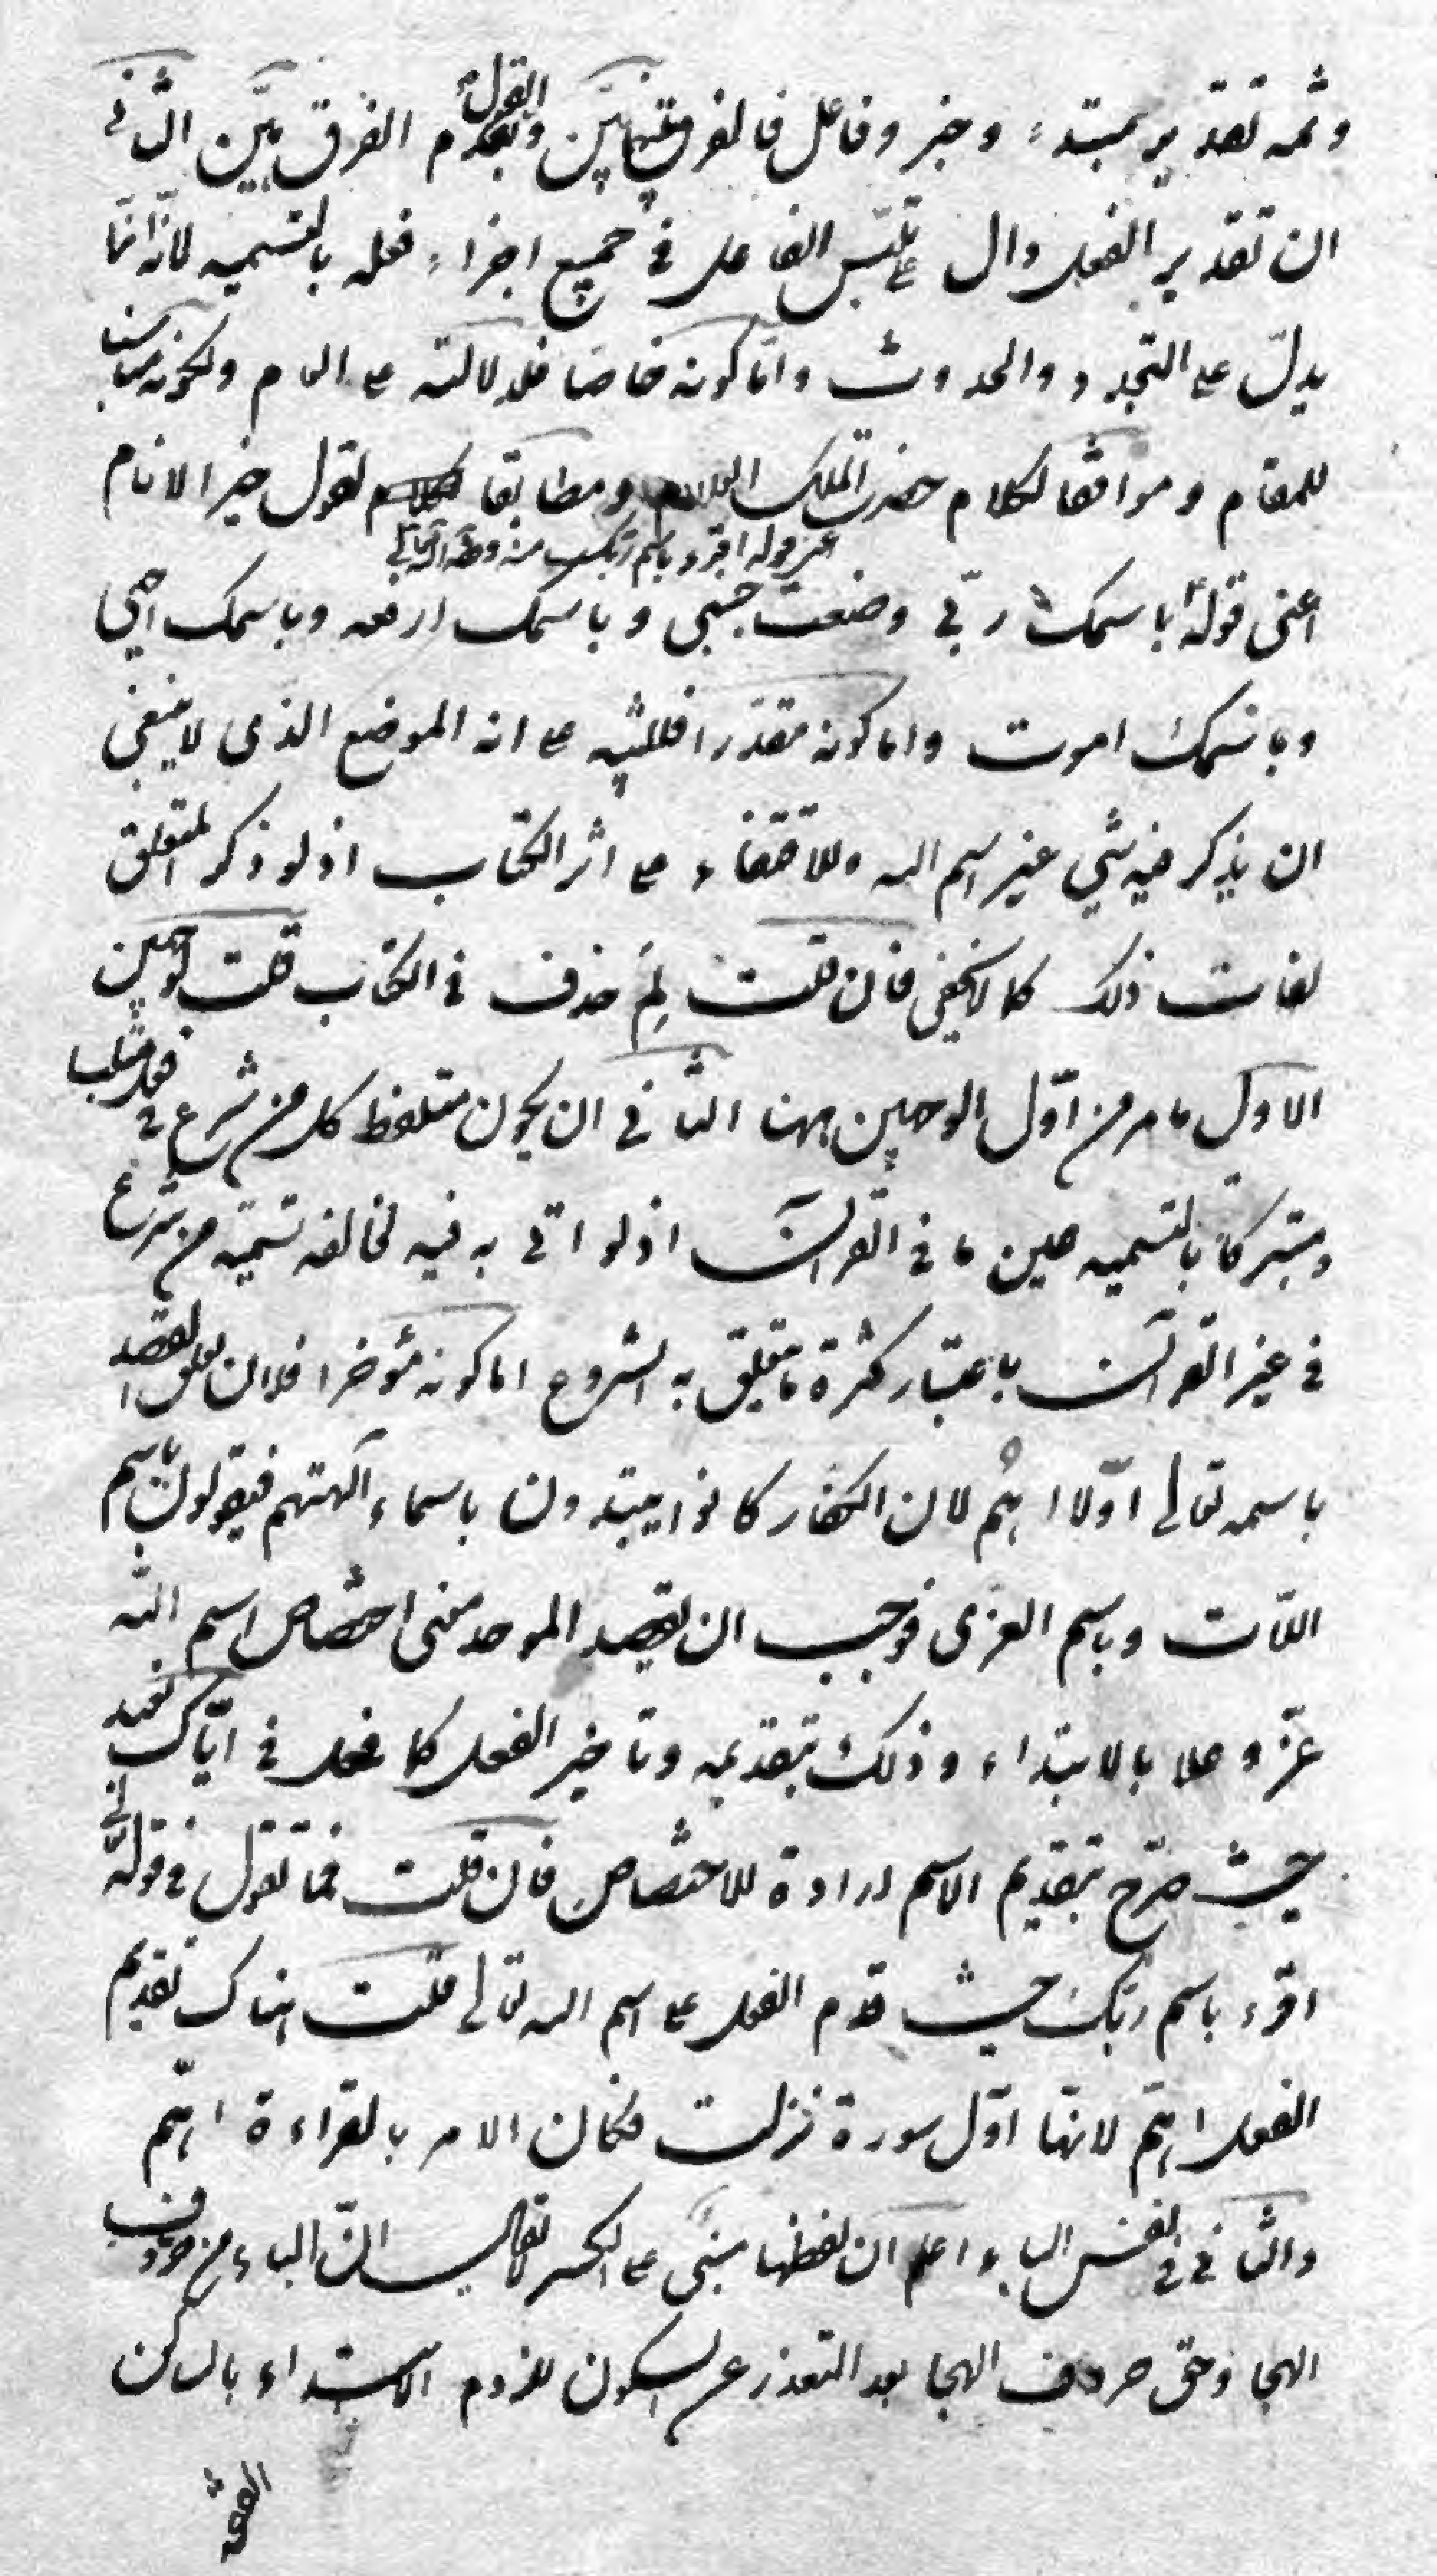 وثمه تقدير مبتدء وخبر وفاعل فالفرق بينهما بين وبعدم القول الفرق بين الثانى
ان تقدير الفعل دال ع تلبّس الفاعل فى جميع اجزاء فعله بالتسميه لانه انّما
يدلّ ع التجدد والحدوث وامّا كونه خاصّا فلدلالته ع العام ولكونه مناسبا
للمقام وموافقا لكلام حضرت الملك العلام ومطابقا لقول خير الانام
عنى قوله اقرء باسم ربك منه
اعنى قوله باسمك ربّى وضعت جنبى وباسمك ارفعه وباسمك احيى
وباسمك اموت واما كونه مقدّرا فللتنبيه ع انه الموضع الذى لا ينبغى
ان يذكر فيه شي غير اسم الله وللاقتفاء ع اثر الكتاب اذ لو ذكر المتعلق
لفات ذلك كما لا يخفى فان قلت لِمَ حذف فى الكتاب قلت لوجهين
الاول ما مر من اوّل الوجهين ههنا الثانى ان يكون متلفظ كل من شرع فى فعل متلبسا
ومتبركا بالتسميه عين ما فى القرآن اذ لو اتى به فيه لخالفه تسميه من شرع
فى غير القرآن باعتبار كثرة ما يتعلق به الشروع اما كونه مؤخرا فلان تعلق القصد
باسمه تعالى اوّلا اهم لان الكفار كانوا يبتدون باسماء آلهتهم فيقولون باسم
اللات وباسم العزى فوجب ان يقصد الموحد معنى اختصاص اسم الله
عزّ وعلا بالابتداء وذلك بتقديمه وتاخير الفعل كما فعل فى ايّاك نعبد
حيث صرّح بتقديم الاسم ارادة للاختصاص فان قلت فما تقول فى قوله تعالى
اقرء باسم ربك حيث قدم الفعل ع اسم الله تعالى قلت هناك تقديم
الفعل اهمّ لانها اوّل سورة نزلت فكان الامر بالقراءة اهمّ
والثانى فى نفس الباء اعلم ان لفظها مبنى ع الكسر لا يقال انّ الباء من حروف
الهجا وحق حروف الهجا بعد التعذر عن السكون للزوم الابتداء بالساكن
الفتحه